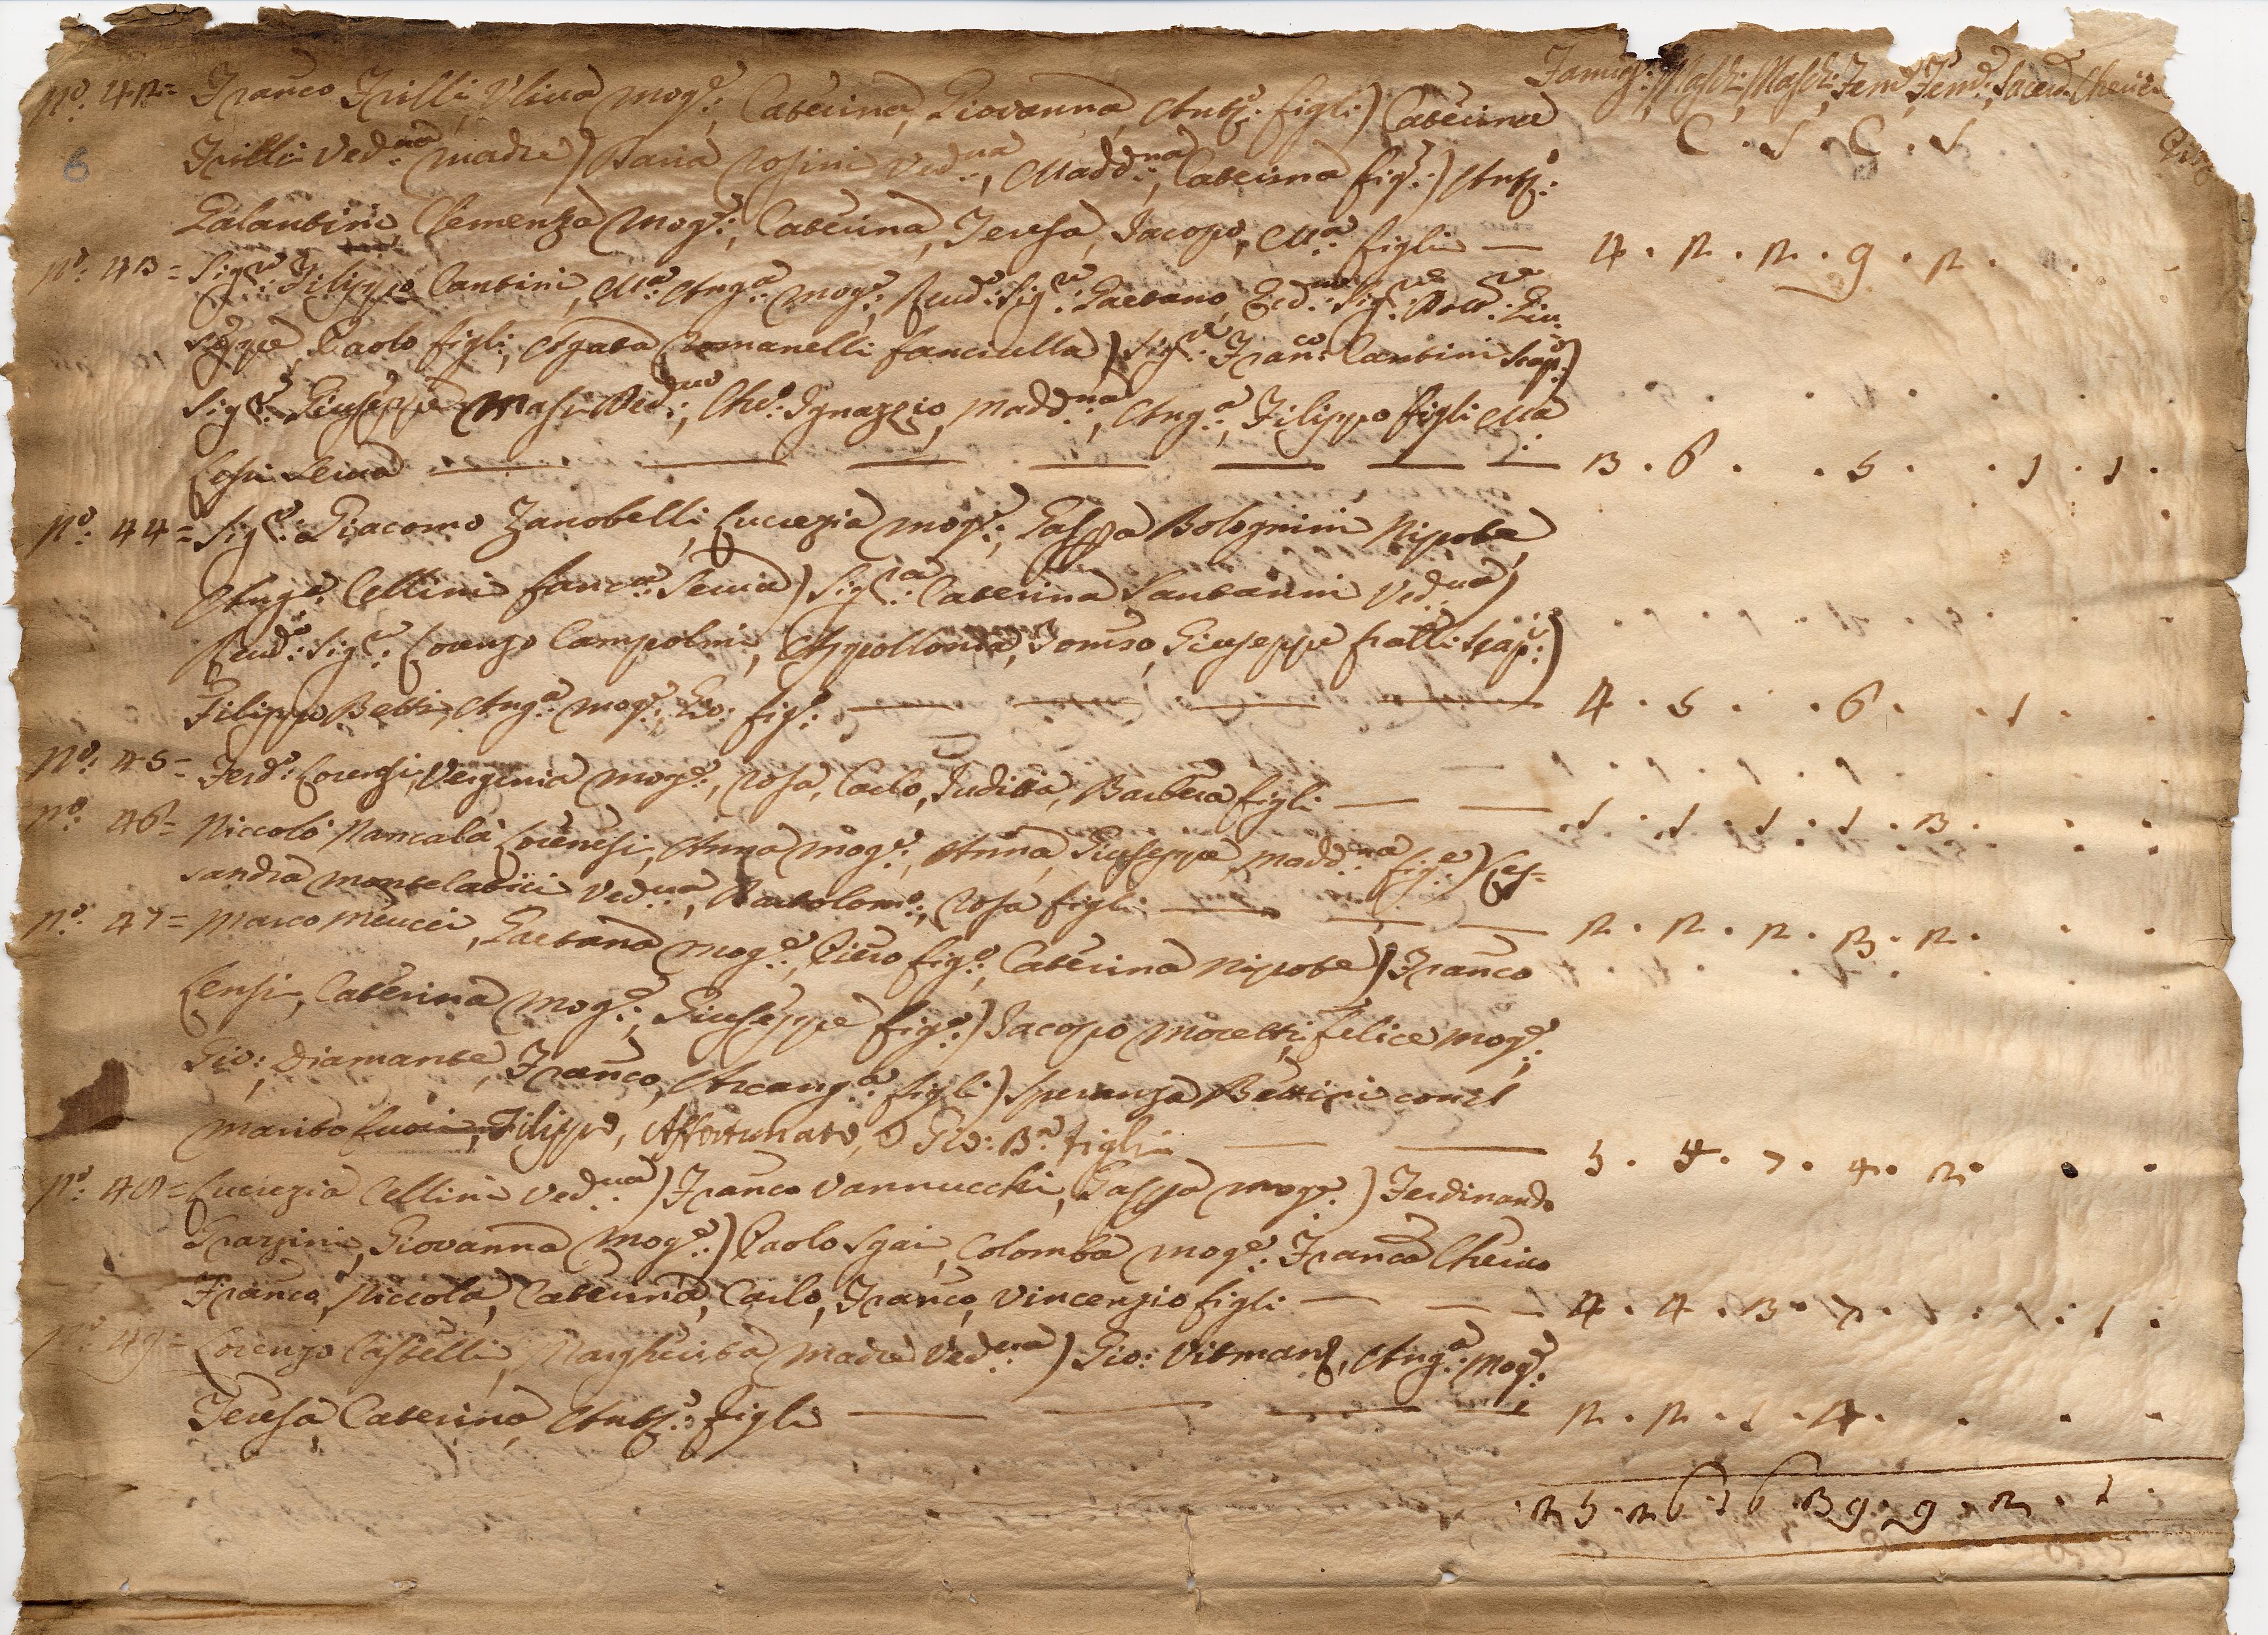 Famigᵉ: Maschi, Maschi, Femᵉ, Femᵉ: Sacerᵈ: Cheri
C . S . C . S
Nº: 42= Franco Frilli, Uliva Mogᵉ:, Caterina, Giovanna, Antᵒ: figli) Caterina
Frilli Vedᵛᵃ: madre) Maria Rosini Vedᵛᵃ:, Maddⁿᵃ:, Caterina figᵉ:) Antᵒ:
Galantini Clemenza Mogᵉ:, Caterina, Teresa, Jacopo, Mᵃ: figli — 4 . 2 . 2 . 9 . 2 . . .
Nº: 43= Sigʳᵉ: Filippo Cantini, Mᵃ: Angᵃ: Mogᵉ:, Revdᵒ: Sigʳᵉ: Gaetano, Sigʳᵉ: Dottʳᵉ: Giu
seppe, Paolo figli, Agata Romanelli fanciulla) Sigʳᵉ: Franᶜᵒ: Cantini Scapᵒ:)
Sigʳᵉ: Giuseppe Masi Vedᵛᵒ:, Cheᵒ: Ignazzio, Maddⁿᵃ:, Angᵃ:, Filippo figli Mᵃ
Losi Serva — — — — — — — 3 . 6 . . 5 . . 1 . 1 .
Nº: 44= Sigʳᵉ: Giacomo Zanobelli, Lucrezia Mogᵉ:, Gasppa Bolognini Nipote,
Angᵃ: Cellini fancᵃ: Serva) Sigʳᵃ: Caterina Santarini Vedᵛᵃ)
Revdᵒ: Sigʳᵉ: Lorenzo Campolmi, Appollonia, Tomso, Giuseppe fratelli Scapⁱ:)
Filippo Betti, Angᵃ: Mogᵉ:, Gio: figᵒ: — — — — 4 . 5 . . 6 . . 1 . .
Nº: 45= Ferdᵒ: Lorensi, Verginia Mogᵉ:, Rosa, Carlo, Juditta, Barbera figli — — 1 . 1 . 1 . 1 . 3 . . .
Nº: 46= Niccolò Mancalà Lorensi, Anna Mogᵉ:, Anna, Giuseppe, Maddⁿᵃ: figᵉ:) Les=
sandra Montelatici Vedᵛᵃ, Bartolomᵒ:, Rosa figli — — — 2 . 2 . 2 . 3 . 2 . . .
Nº: 47= Marco Meucci, Gaetana Mogᵉ:, Piero figᵒ:, Caterina Nipote) Franco
Lensi, Caterina Mogᵉ:, Giuseppe figᵒ:) Jacopo Moretti, Felice Mogᵉ:,
Gio:, Diamante, Franco, Arcangᵃ: figli) Speranza Bettini con il
marito fuori, Filippo, Affortunato, e Gio: Bᵃ: figli — — 5 . 5 . 7 . 4 . 2 . . .
Nº: 48= Lucrezia Cellini Vedᵛᵃ) Franco Vannucchi, Gasppa Mogᵉ:) Ferdinando
Giovanna Mogᵉ:) Paolo Sgai, Colomba Mogᵉ: Franco Cherico
Franco, Niccola, Caterina, Carlo, Franco, Vincenzio figli — — — 4 . 4 . 3 . 7 . 1 . . 1 .
Nº: 49= Lorenzo Castelli, Margherita Madre Vedᵛᵃ) Gio: Vitman, Angᵃ: Mogᵉ:
Teresa, Caterina, Antᵒ: figli — — — — 2 . 2 . 1 . 4 . . . .
25 . 26 . 16 . 39 . 9 . 2 . 1 .